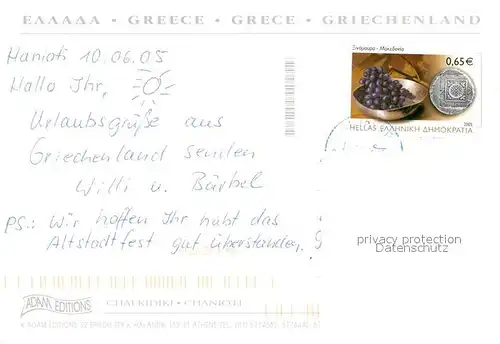 ΕΛΛΑΔΑ • GREECE • GRECE • GRIECHENLAND
Hanioti 10.06.05
Hallo Ihr,
Urlaubsgrüße aus
Griechenland senden
Willi u. Bärbel
PS.: Wir hoffen Ihr habt das
Altstadtfest gut überstanden.
Ξινόμαυρο - Μακεδονία
0,65 €
2005
HELLAS ΕΛΛΗΝΙΚΗ ΔΗΜΟΚΡΑΤΙΑ
privacy protection
Datenschutz
ADAM EDITIONS
CHALKIDIKI • CHANIOTI
© ADAM EDITIONS